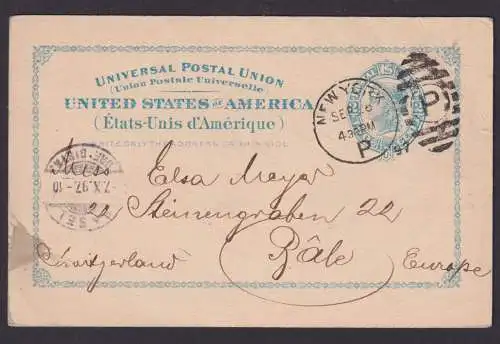 UNIVERSAL POSTAL UNION
(Union Postale Universelle)
UNITED STATES OF AMERICA
(États-Unis d'Amérique)
WRITE ONLY THE ADDRESS ON THIS SIDE
NEW YORK
SEP
430PM
P
97
7.X.97.-10
Elsa Meyer
22 Steinengraben 22
Bâle
Switzerland
Europe